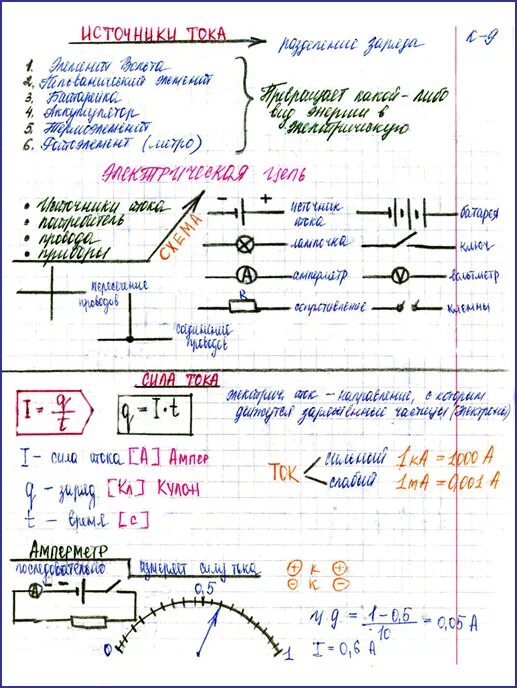 ИСТОЧНИКИ ТОКА → разделение заряда К-9
1. Элементы Вольта
2. Гальванический элемент
3. Батарейка
4. Аккумулятор
5. Термоэлемент
6. Фотоэлемент (метро)
Превращает какой-либо
вид энергии в
электрическую
ЭЛЕКТРИЧЕСКАЯ ЦЕПЬ
• Источники тока
• потребитель
• провода
• приборы
СХЕМА
- +
источник
тока
батарея
лампочка
ключ
A
амперметр
V
вольтметр
R
сопротивление
клеммы
пересечение
проводов
соединение
проводов
СИЛА ТОКА
I = q/t
q = I·t
электрич. ток - направление, с которым
движутся заряженные частицы (электроны)
I - сила тока [А] Ампер
q - заряд [Кл] Кулон
t - время [с]
ТОК
сильный 1кА = 1000 А
слабый 1mA = 0,001 А
Амперметр
последовательно
измеряет силу тока
A
0
0,5
1
⊕ к ⊕
⊖ к ⊖
ц д = 1-0,5/10 = 0,05 А
I = 0,6 А